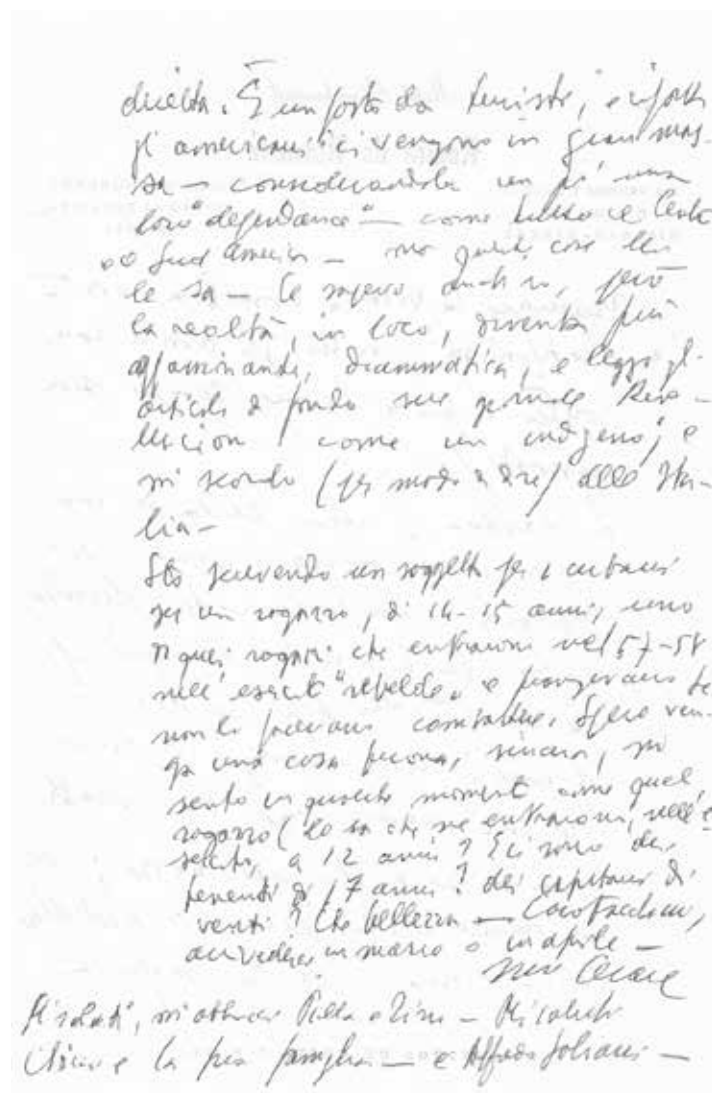 diretta. È un posto da turisti, e infatti
gli americani ci vengono in gran mas-
sa — considerandola un po' una
loro "dependance" — come tutto il Centro
o Sud America — ma queste cose lei
le sa — Le sapevo anch'io, però
la realtà, in loco, diventa più
affascinante, drammatica, e leggo gli
articoli di fondo sul giornale Revo-
lucion come un indigeno, e
mi scordo (per modo di dire) dell'Ita-
lia —
Sto scrivendo un soggetto per i cubani
su un ragazzo, di 14-15 anni, uno
di quei ragazzi che entrarono nel 57-58
nell'esercito "rebelde" e piangevano se
non li facevano combattere. Spero ven-
ga una cosa buona, sincera, mi
sento in questo momento come quel
ragazzo (lo sa che ne entrarono, nell'e-
sercito, a 12 anni? E ci sono dei
tenenti di 17 anni? dei capitani di
venti? Che bellezza —
arrivederci in marzo o in aprile —
suo Cesare
Mi saluti, mi abbracci — Mi saluti
e la sua famiglia — e Alfredo